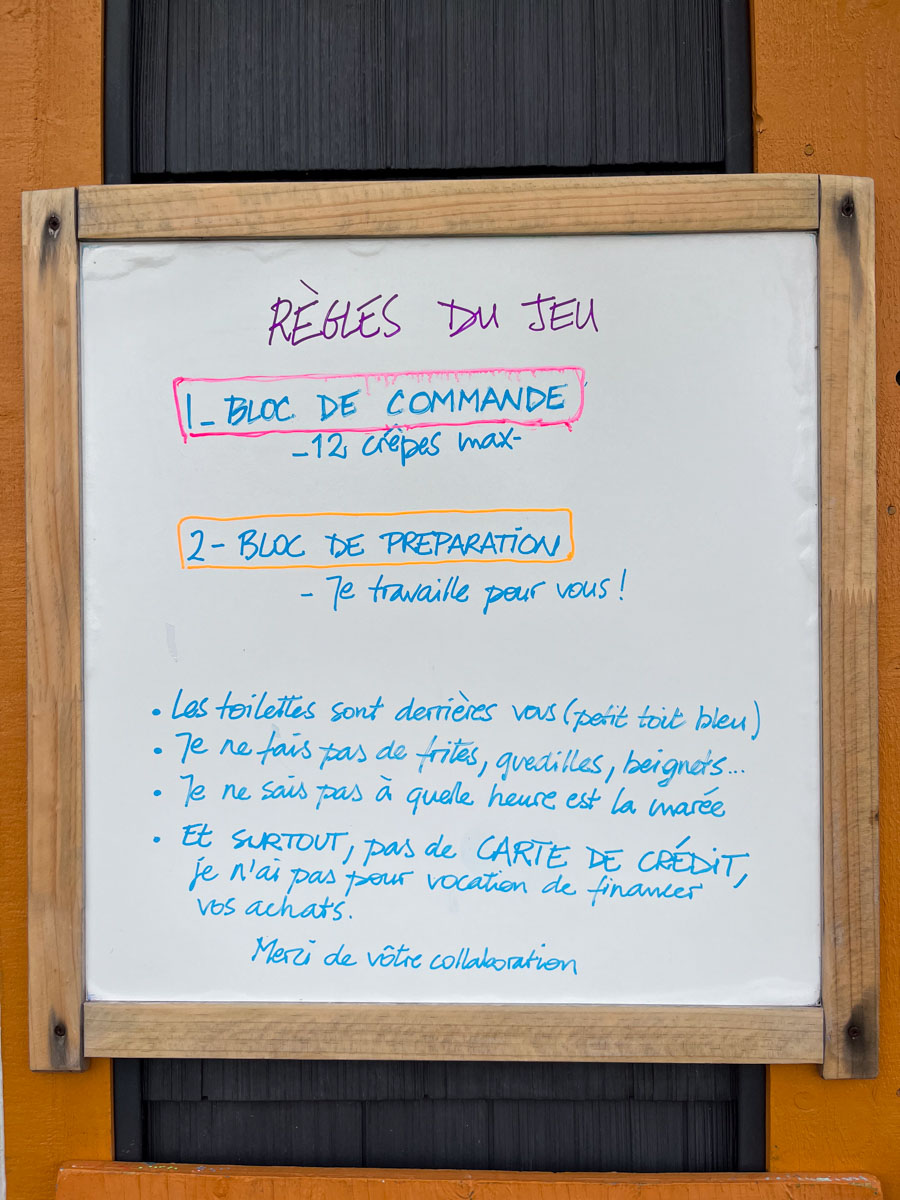 RÈGLES DU JEU
1_ BLOC DE COMMANDE
-12 crêpes max-
2- BLOC DE PREPARATION
- Je travaille pour vous !
• Les toilettes sont derrières vous (petit toit bleu)
• Je ne fais pas de frites, guedilles, beignets...
• Je ne sais pas à quelle heure est la marée
• Et SURTOUT, pas de CARTE DE CRÉDIT,
je n'ai pas pour vocation de financer
vos achats.
Merci de vôtre collaboration